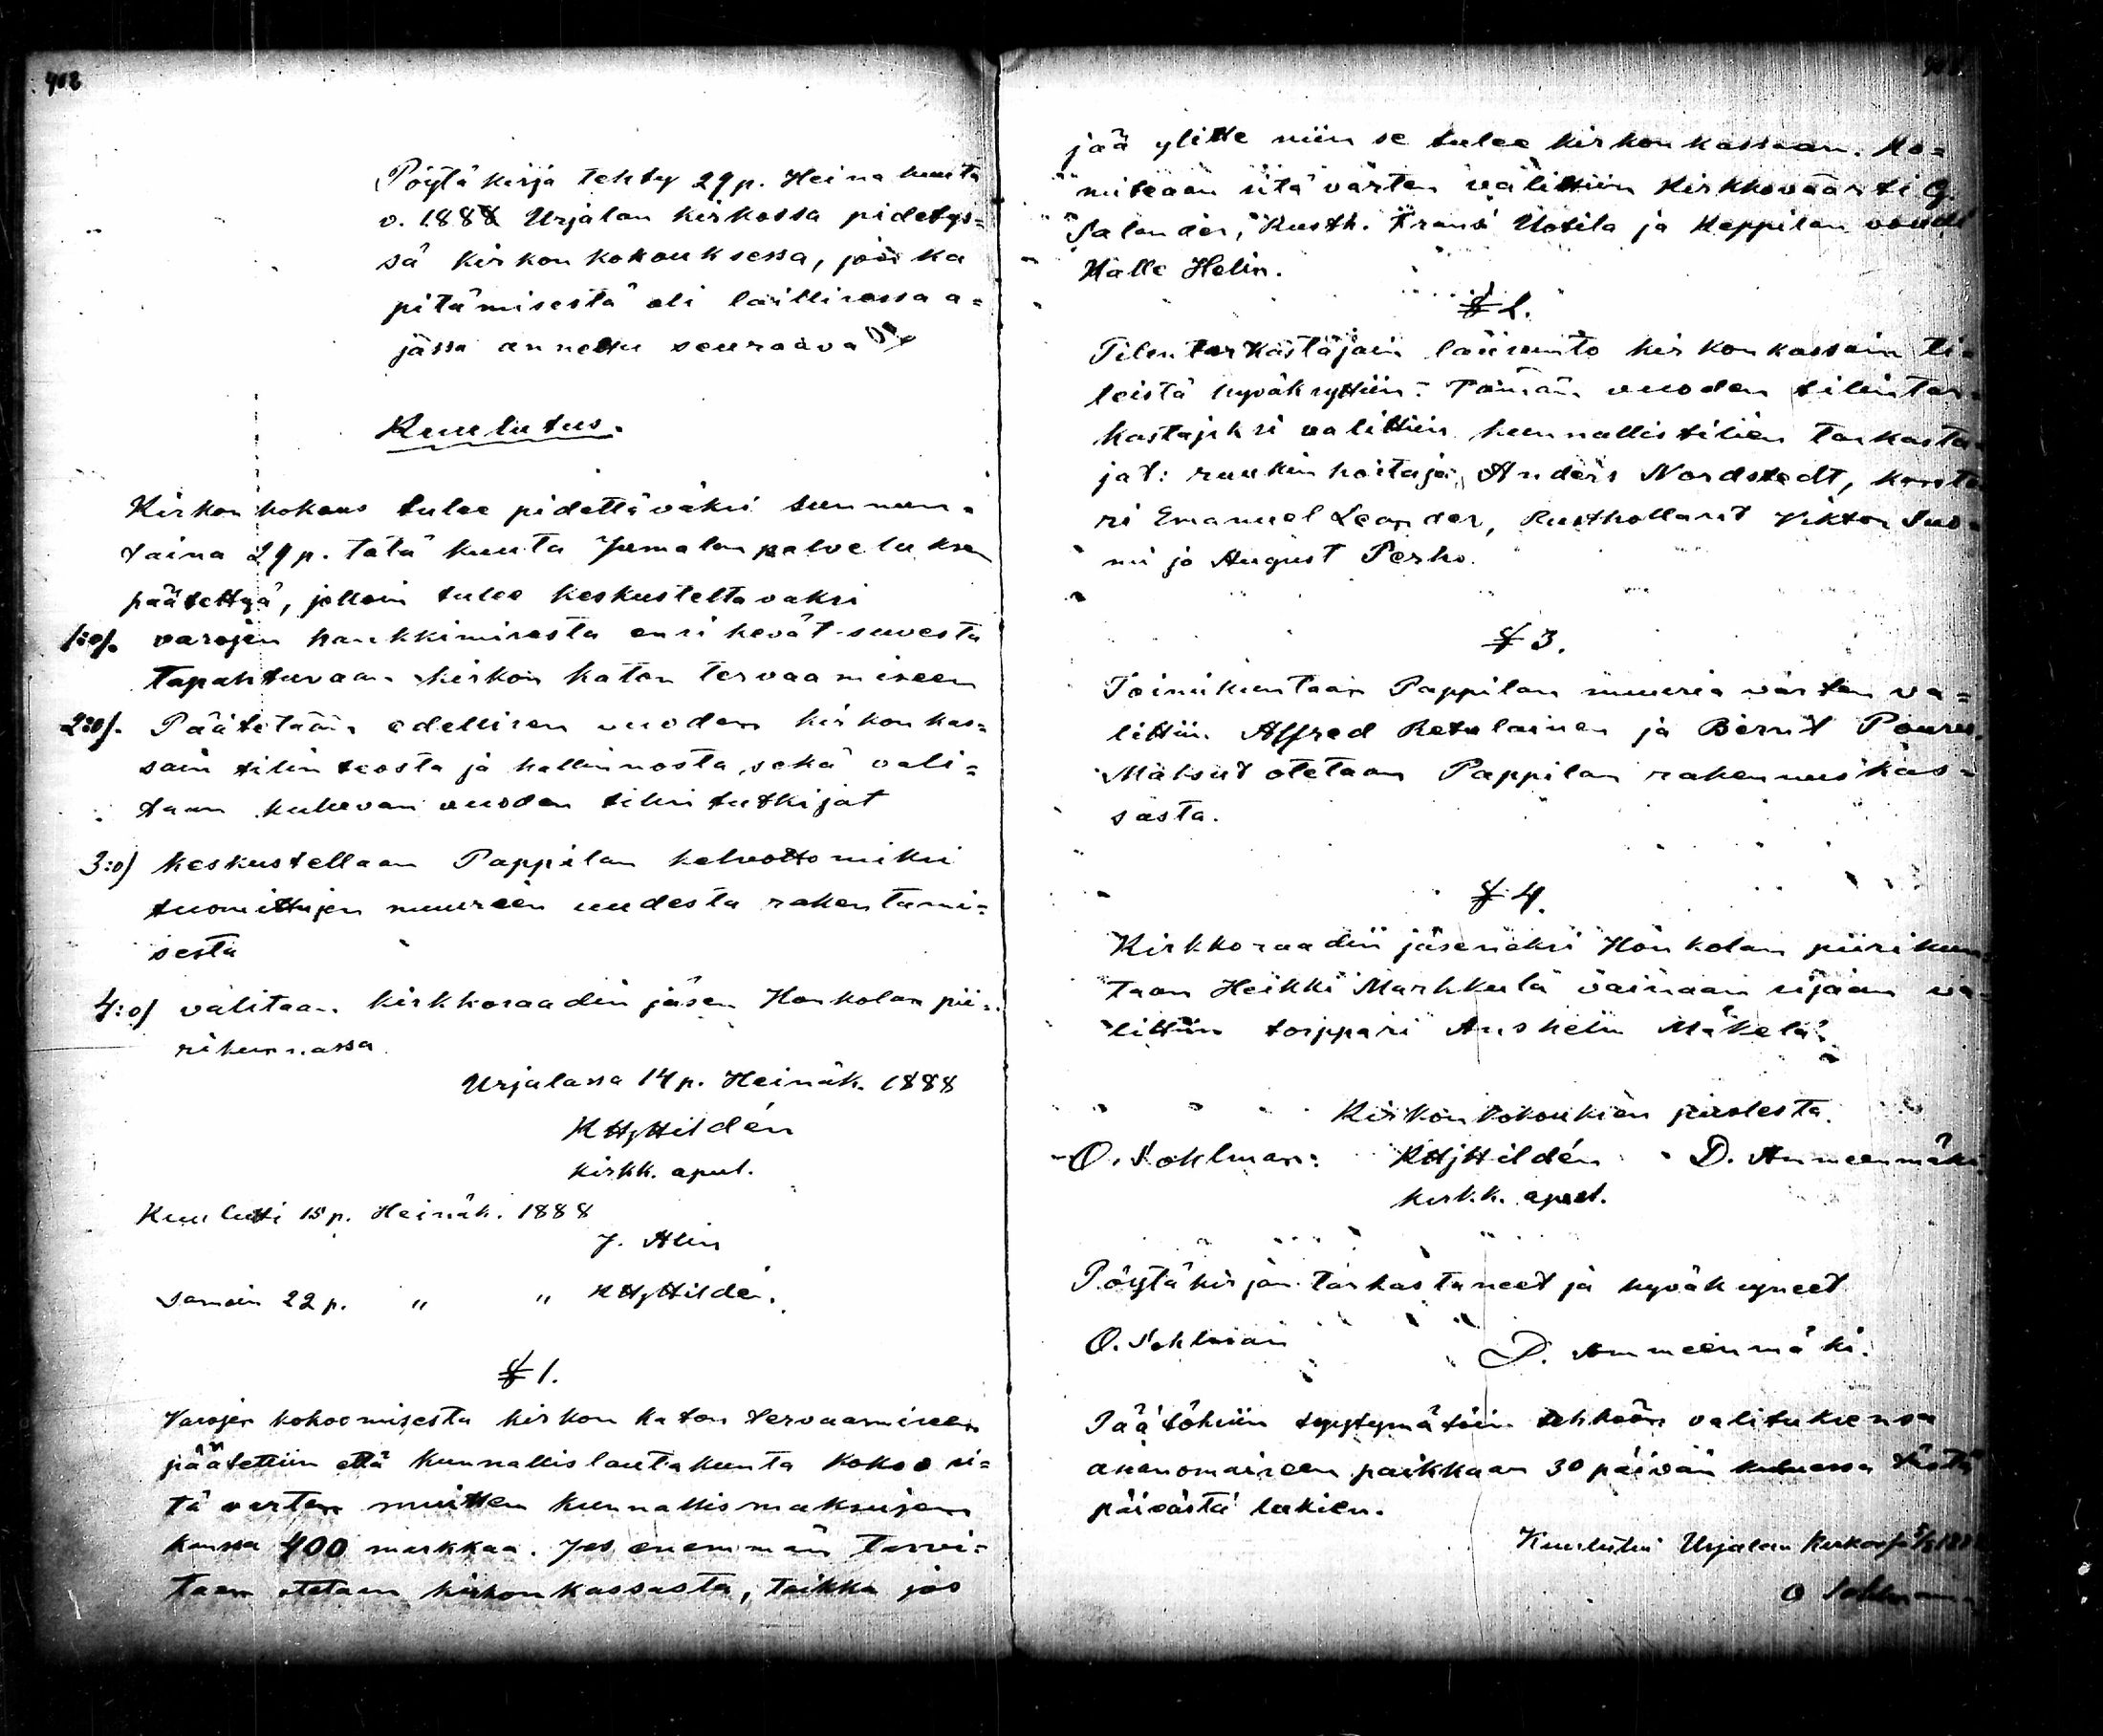 408
Pöytäkirja tehty 29 p. Heinakuuta
v. 1888 Urjalan kirkossa pidetys=
sä kirkonkokouksessa, jonka
pitämisestä oli laillisessa a=
jassa annettu seuraava
Kuulutus.
Kirkonkokous tulee pidettäväksi sunnun=
taina 29 p. tätä kuuta Jumalan palveluksen
päätettyä, jolloin tulee keskusteltavaksi
1:o/. varojen hankkimisesta ensi kevät-suvesta
tapahtuvaan kirkon katon tervaamiseen
2:o/. Päätetään edellisen vuoden kirkonkas=
sain tilinteosta ja hallinnosta, sekä vali=
taan kuluvan vuoden tilintutkijat
3:o/ keskustellaan Pappilan kelvottomiksi
tuomittujen muurein uudesta rakentami=
sesta
4:o/ valitaan kirkkoraadin jäsen Honkolan pii=
rikunnassa
Urjalassa 14 p. Heinäk. 1888
K Hj Hildén
kirkk. apul.
Kuulutti 15 p. Heinäk. 1888
J. Alin
Samoin 22 p. " " K Hj Hildén.
§ 1.
Varojen kokoomisesta kirkon katon tervaamiseen
päätettiin että kunnallislautakunta kokoo si=
tä varten muitten kunnallismaksujen
kanssa 400 markkaa. Jos enemmän tarvi=
taan otetaan kirkonkassasta, taikka jos
jää ylitte niin se tulee kirkonkassaan. Ko=
miteaan sitä värten välittiin Kirkkoväärti G.
Salander, Rusth. Frans Uotila ja Keppilan voudi
Kalle Helin.
§ 2.
Tilintarkastajain lausunto kirkonkassain ti=
leistä hyväksyttiin. Tämän vuoden tilintar=
kastajiksi valittiin kunnallistilien tarkasta=
jat: ruukinhoitaja Anders Nordstedt, kantto
ri Emanuel Leander, Rusthollarit Viktor Suo=
mi ja August Perho.
§ 3.
Toimikuntaan Pappilan muuria värten va=
littiin Alfred Retulainen ja Bernt Pouru.
Maksut otetaan Pappilan rakennuskas=
sasta.
§ 4.
Kirkkoraadin jäseneksi Honkolan piirikun
taan Heikki Markkula vainaan sijaan va=
littiin torppari Anshelm Mäkelä.
Kirkonkokouksen puolesta.
O. Sohlman. K Hj Hildén D. Ammeenmäki
kirkk. apul.
Pöytäkirjan tarkastaneet ja hyväksyneet
O. Sohlman D. Ammeenmäki.
Päätöksiin tyytymätöin tehköön valituksensa
asianomaiseen paikkaan 30 päivän kuluessa tästä
päivästä lukien.
Kuulutui Urjalan kirkossa 5/8 1888
O Sohlman